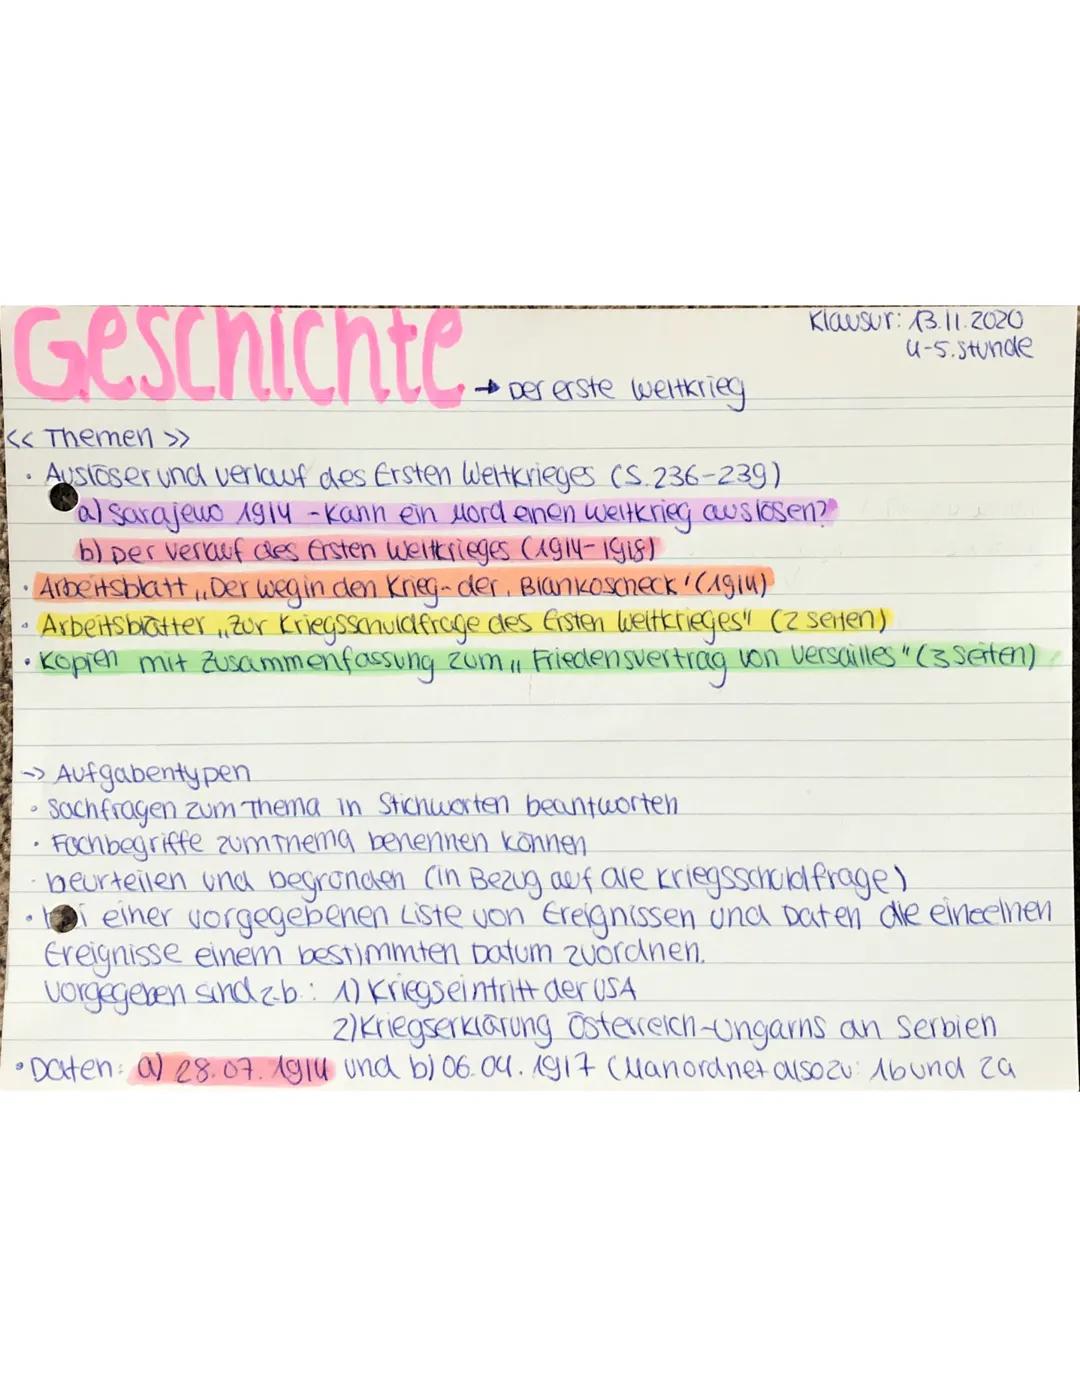 Geschichte → Der erste Weltkrieg
Klausur: 13.11.2020
4-5. Stunde
<< Themen >>
· Auslöser und Verlauf des Ersten Weltkrieges (S. 236-239)
a) Sarajewo 1914 - Kann ein Mord einen Weltkrieg auslösen?
b) Der Verlauf des Ersten Weltkrieges (1914-1918)
· Arbeitsblatt „Der Weg in den Krieg - der , Blankoscheck ' (1914)
· Arbeitsblätter „Zur Kriegsschuldfrage des Ersten Weltkrieges" (2 Seiten)
· Kopien mit Zusammenfassung zum „Friedensvertrag von Versailles" (3 Seiten)
-> Aufgabentypen
· Sachfragen zum Thema in Stichworten beantworten
· Fachbegriffe zum Thema benennen können
· beurteilen und begründen (in Bezug auf die Kriegsschuldfrage)
· bei einer vorgegebenen Liste von Ereignissen und Daten die einzelnen
Ereignisse einem bestimmten Datum zuordnen.
Vorgegeben sind z.b.: 1) Kriegseintritt der USA
2) Kriegserklärung Österreich-Ungarns an Serbien
· Daten: a) 28.07.1914 und b) 06.04.1917 (Man ordnet also zu: 1b und 2a